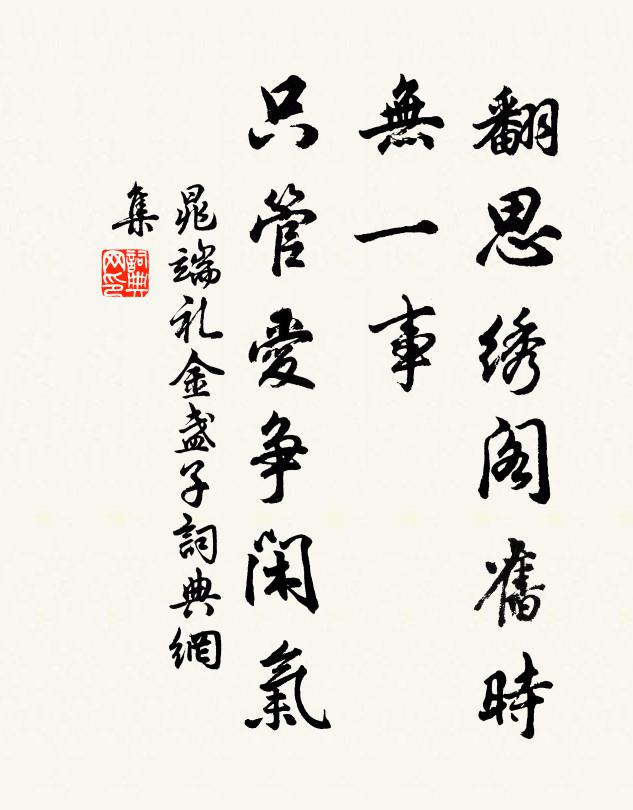 翻思绣阁舊時
無一事
只管愛争閑氣
晁端礼金盏子詞典網
集
詞典
网印